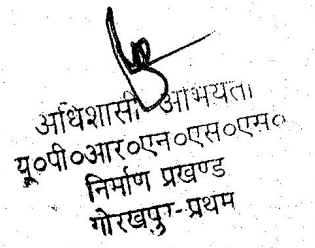 अधिशासी अभियता
यू०पी०आर०एन०एस०एस०
निर्माण प्रखण्ड
गोरखपुर-प्रथम